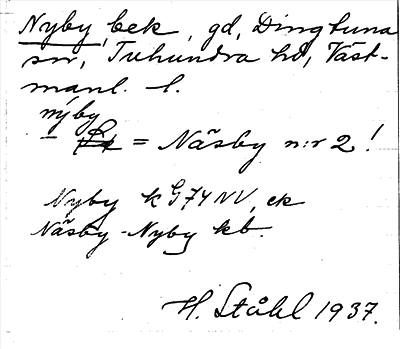 Nyby, bek, gd, Dingtuna
sn, Tuhundra hd, Väst-
manl. l.
nýby
— = Näsby n:r 2!
Nyby k G74 NV, ek
Näsby-Nyby kb.
H. Ståhl 1937.